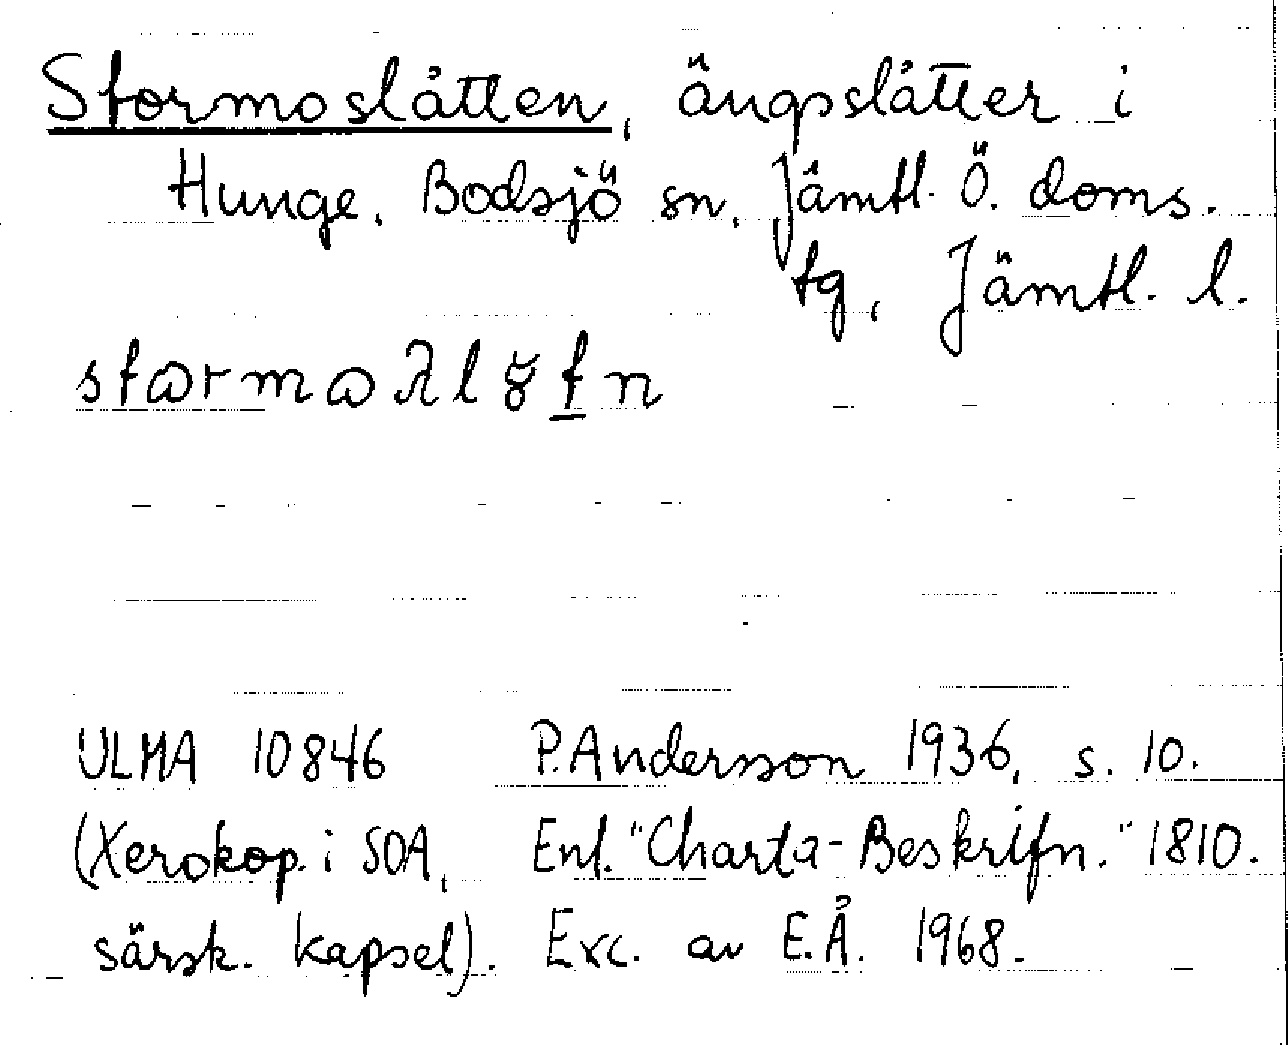 Stormoslåtten, ängsslåtter i
Hunge, Bodsjö sn, Jämtl. Ö. doms.
tg, Jämtl. l.
ULMA 10846 P. Andersson 1936, s. 10.
(Xerokop. i SOA, Enl. "Charta-Beskrifn." 1810.
särsk. kapsel). Exc. av E.Å. 1968.